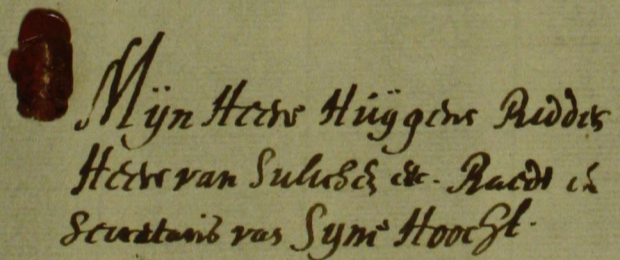 Mijn Heere Huÿgens Ridder
Heere van Sulichē etc. Raedt en
Secretaris van Syne Hoocht.